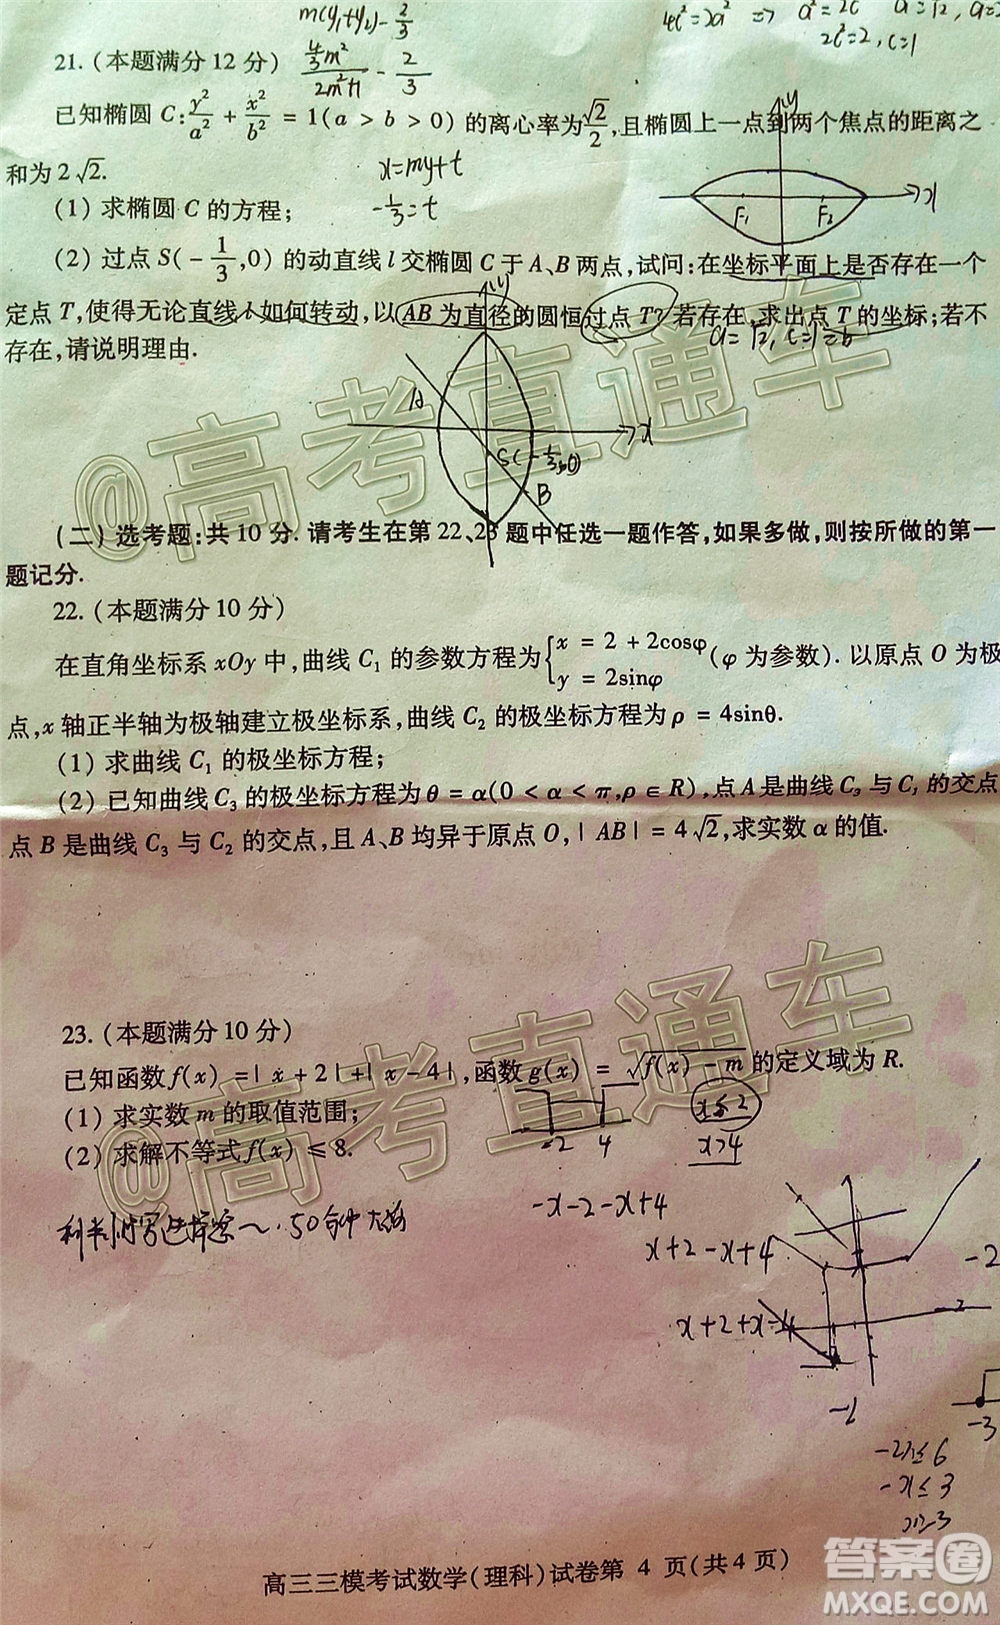 m(y₁+y₂)-2/3
4c²=2a² ⇒ a²=2c
2c²=2, c=1
21. (本题满分 12 分)
4/3m²/2m²+1 - 2/3
已知椭圆 C:y²/a² + x²/b² = 1(a > b > 0) 的离心率为√2/2,且椭圆上一点到两个焦点的距离之
和为 2√2.
x=my+t
(1) 求椭圆 C 的方程;
-1/3=t
y
x
F₁
F₂
(2) 过点 S(-1/3,0) 的动直线 l 交椭圆 C 于 A、B 两点,试问:在坐标平面上是否存在一个
定点 T,使得无论直线 l 如何转动,以 AB 为直径的圆恒过点 T? 若存在,求出点 T 的坐标;若不
存在,请说明理由.
a=√2, c=1=b
y
A
x
S(-1/3,0)
B
(二) 选考题:共 10 分. 请考生在第 22、23 题中任选一题作答,如果多做,则按所做的第一
题记分.
22. (本题满分 10 分)
在直角坐标系 xOy 中,曲线 C₁ 的参数方程为{x = 2 + 2cosφ
y = 2sinφ (φ 为参数). 以原点 O 为极
点,x 轴正半轴为极轴建立极坐标系,曲线 C₂ 的极坐标方程为 ρ = 4sinθ.
(1) 求曲线 C₁ 的极坐标方程;
(2) 已知曲线 C₃ 的极坐标方程为 θ = α(0 < α < π,ρ ∈ R),点 A 是曲线 C₃ 与 C₁ 的交点
点 B 是曲线 C₃ 与 C₂ 的交点,且 A、B 均异于原点 O,|AB| = 4√2,求实数 α 的值.
23. (本题满分 10 分)
已知函数 f(x) =|x+2|+|x-4|,函数 g(x) = √f(x) - m 的定义域为 R.
(1) 求实数 m 的取值范围;
x≤2
-2 4
x>4
(2) 求解不等式 f(x) ≤ 8.
-x-2-x+4
x+2-x+4
x+2+x-4
-2
-1
-3
-2x≤6
-x≤3
x≥-3
高三三模考试数学(理科)试卷第 4 页(共 4 页)
@高考直通车
@高考直通车
答案圈
MXQE.COM